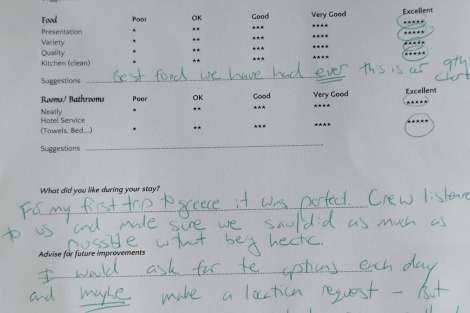 Food Poor OK Good Very Good Excellent
Presentation * ** *** **** *****
Variety * ** *** **** *****
Quality * ** *** **** *****
Kitchen (clean) * ** *** **** *****
Suggestions Best food we have had ever this is our 9th
Rooms/ Bathrooms Poor OK Good Very Good Excellent
Neatly * ** *** **** *****
Hotel Service
(Towels, Bed...) * ** *** **** *****
Suggestions
What did you like during your stay?
For my first trip to greece it was perfect. Crew listened
to us and made sure we saw/did as much as
possible without being hectic.
Advise for future improvements
I would ask for te options each day
and maybe make a location request - But